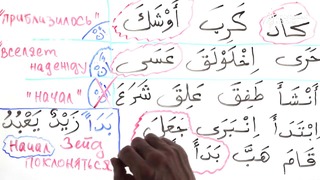 "приблизилось" كَادَ كَرِبَ أَوْشَكَ
"вселяет
надежду" عَسَى اِخْلَوْلَقَ حَرَى
"начал" شَرَعَ عَلِقَ طَفِقَ أَنْشَأَ
جَعَلَ اِنْبَرَى اِبْتَدَأَ
بَدَأَ هَبَّ قَامَ
بَدَأَ زَيْدٌ يَعْبُدُ
Начал Зейд
поклоняться